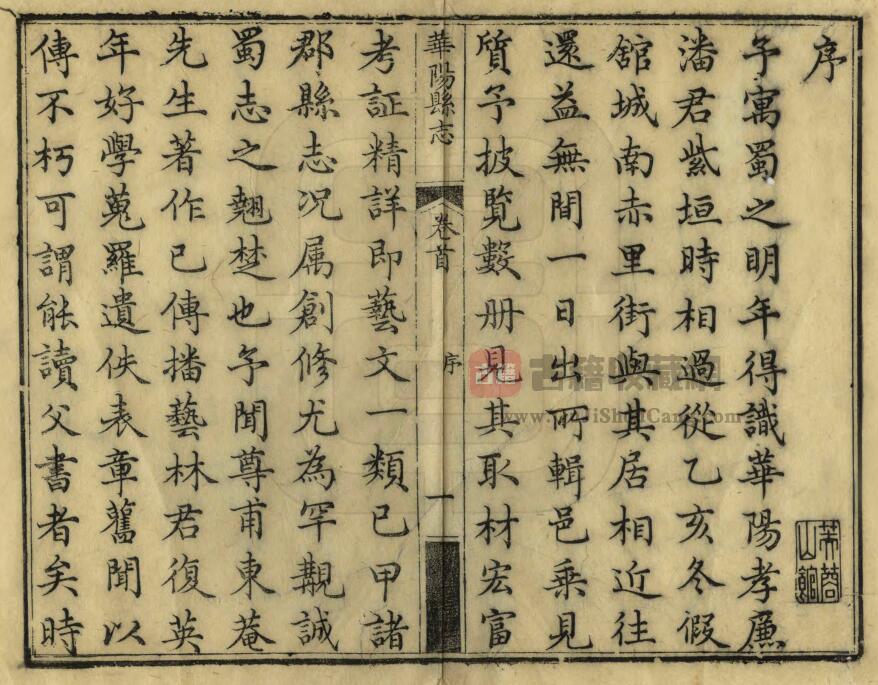 序
予寓蜀之明年得識華陽孝廉
潘君紫垣時相過從乙亥冬假
舘城南赤里街與其居相近往
還益無間一日出所輯邑乘見
質予披覧數册見其取材宏富
華陽縣志 卷首 序 一
考証精詳即藝文一類已甲諸
郡縣志况属創修尤為罕覯誠
蜀志之翹楚也予聞尊甫東菴
先生著作已傳播藝林君復英
年好學蒐羅遺佚表章舊聞以
傳不朽可謂能讀父書者矣時
芙蓉山館
古籍
古籍收藏網